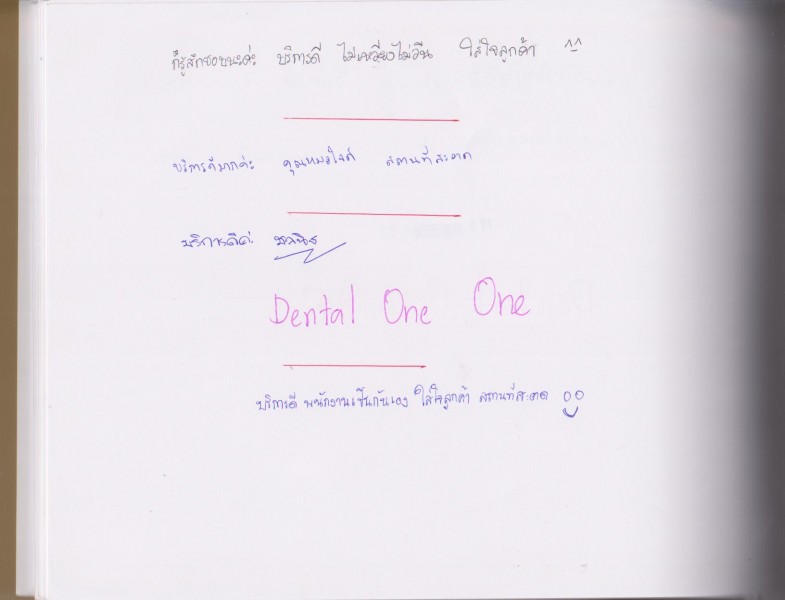 ก็รู้สึกชอบนะค่ะ บริการดี ไม่เหวี่ยงไม่วีน ใส่ใจลูกค้า ^_^
บริการดีมากค่ะ คุณหมอใจดี สถานที่สะอาด
บริการดีค่ะ
Dental One One
บริการดี พนักงานเป็นกันเอง ใส่ใจลูกค้า สถานที่สะอาด